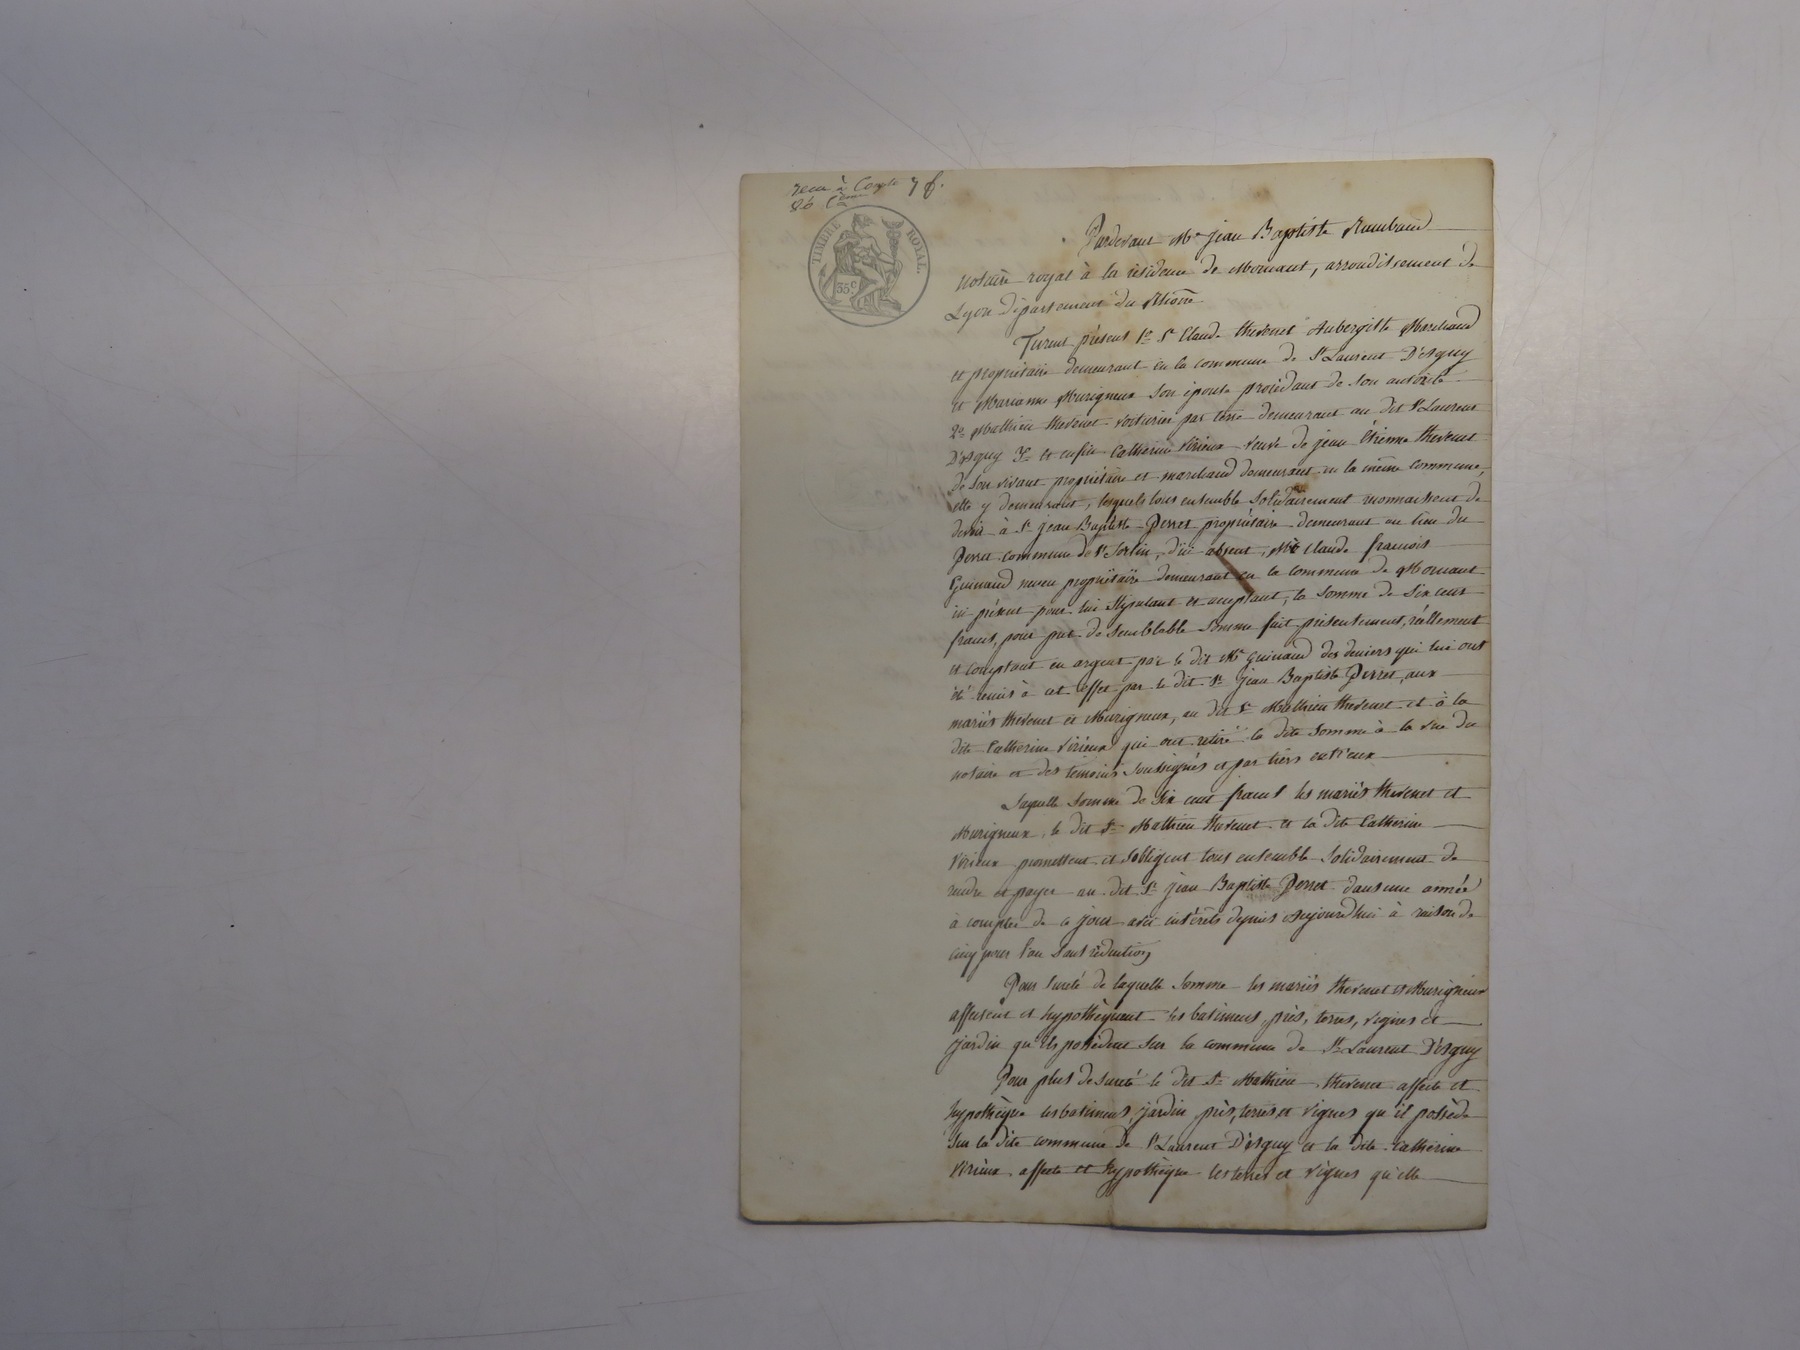 recu à Compte 7 f.
86 C.
TIMBRE ROYAL.
35 c
Pardevant Me jean Baptiste Rambaud
notaire royal à la résidence de Mornant, arrondissement de
Lyon département du Rhône
Furent présens 1o Sr Claude thevenet Aubergiste Marchand
et propriétaire demeurant en la commune de St Laurent D'Aguy
et Marianne Murigneux son épouse procédant de son autorité
2o Mathieu thevenet voiturier par terre demeurant au dit St Laurent
D'Aguy 3o et enfin Catherine Virieux veuve de jean Etienne thevenet
de son vivant propriétaire et marchand demeurant en la même commune,
elle y demeurant, lesquels tous ensemble solidairement reconnaissent de
devoir à Sr jean Baptiste Perret propriétaire demeurant au lieu du
Perret commune de St Sorlin, d'ici absent, Me Claude francois
Guinand neveu propriétaire demeurant en la commune de Mornant
ici présent pour lui stipulant et acceptant, la somme de Six cent
francs, pour prêt de semblable somme fait présentement, réellement
et comptant en argent par le dit Me Guinand des deniers qui lui ont
été remis à cet effet par le dit Sr jean Baptiste Perret, aux
mariés thevenet et Murigneux, au dit Sr Mathieu thevenet et à la
dite Catherine Virieux qui ont retiré la dite somme à la vue du
notaire et des temoins soussignés et par tiers entr'eux
Laquelle somme de Six cent francs les mariés thevenet et
Murigneux, le dit Sr Mathieu thevenet et la dite Catherine
Virieux promettent et s'obligent tous ensemble solidairement de
rendre et payer au dit Sr jean Baptiste Perret dans une année
à compter de ce jour avec intérêts depuis aujourd'hui à raison de
cinq pour l'an sans réduction
Pour sureté de laquelle somme les mariés thevenet et Murigneux
affectent et hypothèquent les batimens, près, terres, vignes et
jardin qu'ils possèdent sur la commune de St Laurent D'Aguy
Pour plus de sureté le dit Sr Mathieu thevenet affecte et
hypothèque les batimens, jardin, près, terres et vignes qu'il possède
sur la dite commune de St Laurent D'Aguy et la dite Catherine
Virieux affecte et hypothèque les terres et vignes qu'elle